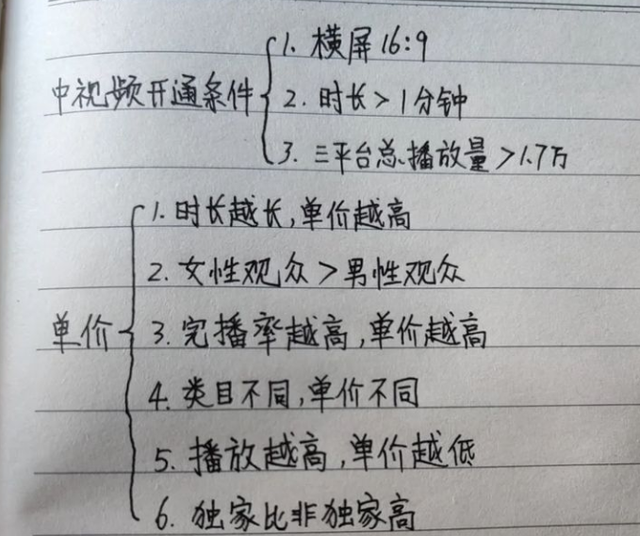 1. 横屏 16:9
中视频开通条件
2. 时长 > 1分钟
3. 三平台总播放量 > 1.7万
1. 时长越长,单价越高
2. 女性观众 > 男性观众
单价
3. 完播率越高,单价越高
4. 类目不同,单价不同
5. 播放越高,单价越低
6. 独家比非独家高